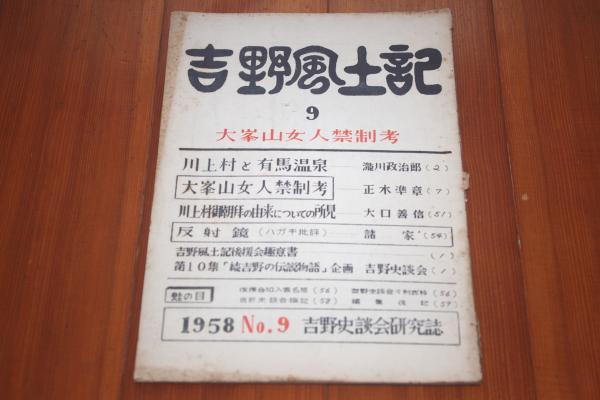 吉野風土記
9
大峯山女人禁制考
川上村と有馬温泉 瀧川政治郎(2)
大峯山女人禁制考 正木準章(7)
川上村御朝拝の由来についての所見 大口善信(51)
反射鏡(ハガキ批評) 諸家(54)
吉野風土記後援会趣意書 (1)
第10集「続吉野の伝説物語」企画 吉野史談会(1)
鮭の目
(56) (56)
(58) 編集後記(59)
1958 No.9 吉野史談会研究誌